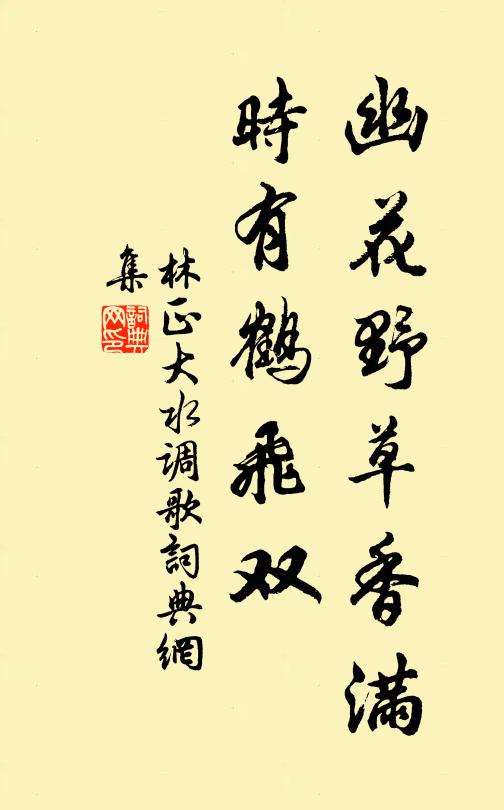 幽花野草香滿
時有鶴飛双
林正大水调歌詞典網
集
詞典网印